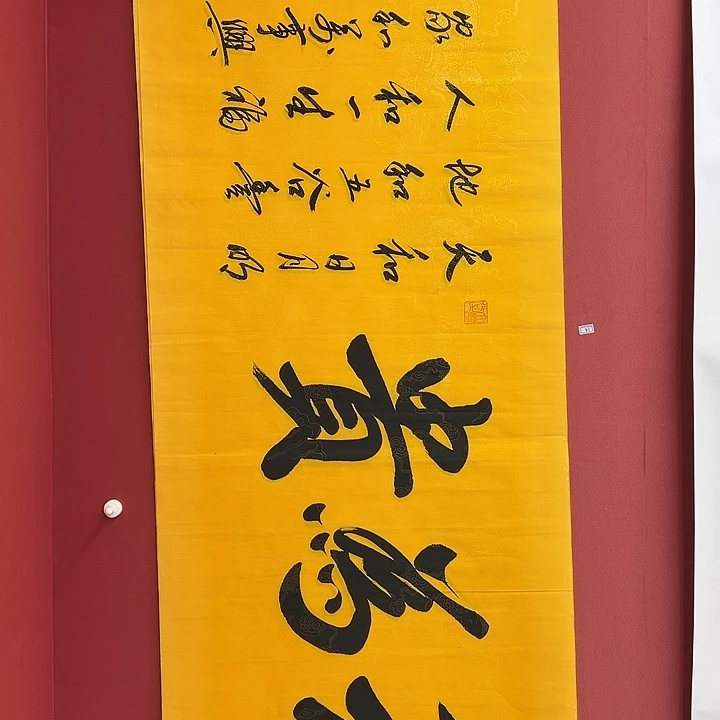 為貴
天和日月明
地和五谷豐
人和一生福
家和萬事興